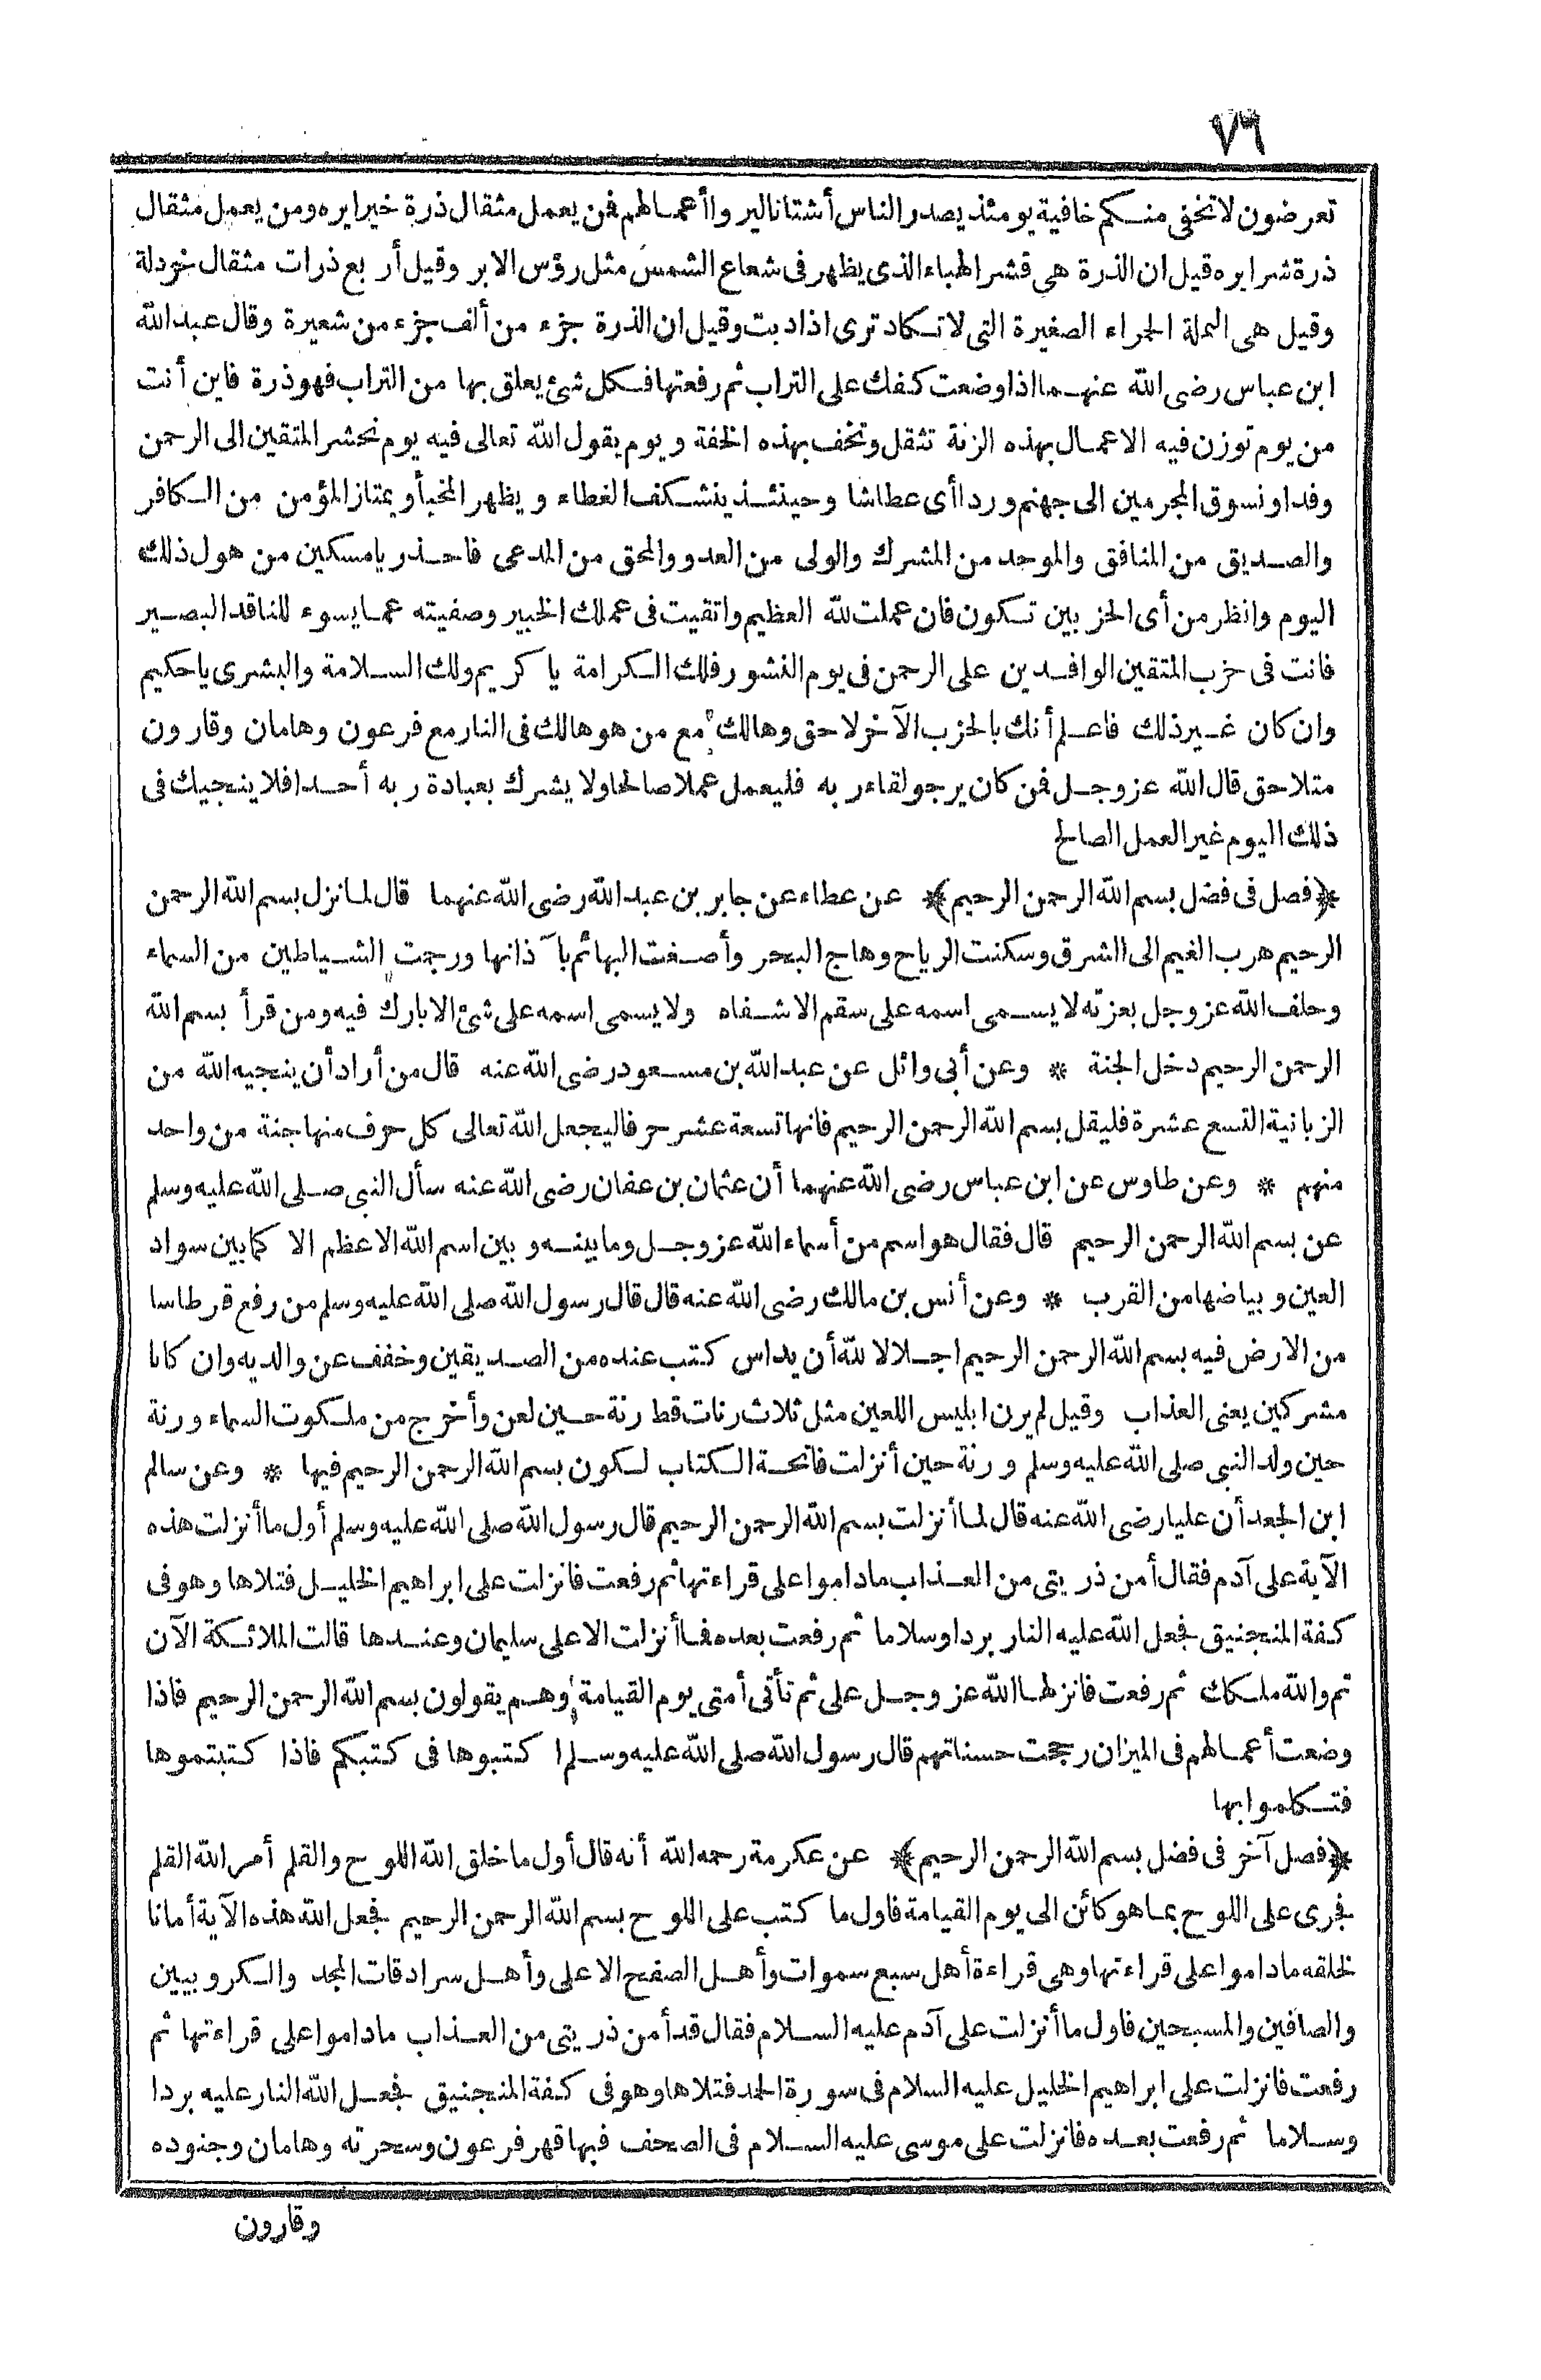 ٧٦
تعرضون لا تخفى منكم خافية يومئذ يصدر الناس أشتاتا ليروا أعمالهم فمن يعمل مثقال ذرة خيرا يره ومن يعمل مثقال
ذرة شرا يره قيل ان الذرة هى قشر الهباء الذى يظهر فى شعاع الشمس مثل رؤس الابر وقيل أربع ذرات مثقال خردلة
وقيل هى النملة الحمراء الصغيرة التى لا تكاد ترى اذا دبت وقيل ان الذرة جزء من ألف جزء من شعيرة وقال عبد الله
ابن عباس رضى الله عنهما اذا وضعت كفك على التراب ثم رفعتها فكل شئ يعلق بها من التراب فهو ذرة فاين أنت
من يوم توزن فيه الاعمال بهذه الزنة تثقل وتخف بهذه الخفة ويوم يقول الله تعالى فيه يوم نحشر المتقين الى الرحمن
وفدا ونسوق المجرمين الى جهنم وردا أى عطاشا وحينئذ ينشكف الغطاء ويظهر المخبأ ويمتاز المؤمن من الكافر
والصديق من المنافق والموحد من المشرك والولى من العدو والمحق من المدعى فاحذر يا مسكين من هول ذلك
اليوم وانظر من أى الحزبين تكون فان عملت لله العظيم واتقيت فى عملك الخبير وصفيته عما يسوء للناقد البصير
فانت فى حزب المتقين الوافدين على الرحمن فى يوم النشور فلك الكرامة يا كريم ولك السلامة والبشرى يا حكيم
وان كان غير ذلك فاعلم أنك بالحزب الآخر لاحق وهالك مع من هو هالك فى النار مع فرعون وهامان وقارون
متلاحق قال الله عز وجل فمن كان يرجو لقاء ربه فليعمل عملا صالحا ولا يشرك بعبادة ربه أحدا فلا ينجيك فى
ذلك اليوم غير العمل الصالح
﴿فصل فى فضل بسم الله الرحمن الرحيم﴾ عن عطاء عن جابر بن عبد الله رضى الله عنهما قال لما نزل بسم الله الرحمن
الرحيم هرب الغيم الى الشرق وسكنت الرياح وهاج البحر وأصغت البهائم بآذانها ورجت الشياطين من السماء
وحلف الله عز وجل بعزته لا يسمى اسمه على سقم الا شفاه ولا يسمى اسمه على شئ الا بارك فيه ومن قرأ بسم الله
الرحمن الرحيم دخل الجنة * وعن أبى وائل عن عبد الله بن مسعود رضى الله عنه قال من أراد أن ينجيه الله من
الزبانية التسع عشرة فليقل بسم الله الرحمن الرحيم فانها تسعة عشر حرفا ليجعل الله تعالى كل حرف منها جنة من واحد
منهم * وعن طاوس عن ابن عباس رضى الله عنهما أن عثمان بن عفان رضى الله عنه سأل النبى صلى الله عليه وسلم
عن بسم الله الرحمن الرحيم قال فقال هو اسم من أسماء الله عز وجل وما بينه وبين اسم الله الاعظم الا كما بين سواد
العين وبياضها من القرب * وعن أنس بن مالك رضى الله عنه قال قال رسول الله صلى الله عليه وسلم من رفع قرطاسا
من الارض فيه بسم الله الرحمن الرحيم اجلالا لله أن يداس كتب عنده من الصديقين وخفف عن والديه وان كانا
مشركين يعنى العذاب وقيل لم يرن ابليس اللعين مثل ثلاث رنات قط رنة حين لعن وأخرج من ملكوت السماء ورنة
حين ولد النبى صلى الله عليه وسلم ورنة حين أنزلت فاتحة الكتاب لكون بسم الله الرحمن الرحيم فيها * وعن سالم
ابن الجعد أن عليا رضى الله عنه قال لما أنزلت بسم الله الرحمن الرحيم قال رسول الله صلى الله عليه وسلم أول ما أنزلت هذه
الآية على آدم فقال أمن ذريتى من العذاب ما داموا على قراءتها ثم رفعت فانزلت على ابراهيم الخليل فتلاها وهو فى
كفة المنجنيق فجعل الله عليه النار بردا وسلاما ثم رفعت بعده فما أنزلت الا على سليمان وعندها قالت الملائكة الآن
تم والله ملكك ثم رفعت فانزلها الله عز وجل على ثم تأتى أمتى يوم القيامة وهم يقولون بسم الله الرحمن الرحيم فاذا
وضعت أعمالهم فى الميزان رجحت حسناتهم قال رسول الله صلى الله عليه وسلم اكتبوها فى كتبكم فاذا كتبتموها
فتكلموا بها
﴿فصل آخر فى فضل بسم الله الرحمن الرحيم﴾ عن عكرمة رحمه الله أنه قال أول ما خلق الله اللوح والقلم أمر الله القلم
فجرى على اللوح بما هو كائن الى يوم القيامة فاول ما كتب على اللوح بسم الله الرحمن الرحيم فجعل الله هذه الآية أمانا
لخلقه ما داموا على قراءتها وهى قراءة أهل سبع سموات وأهل الصفح الاعلى وأهل سرادقات المجد والكروبيين
والصافين والمسبحين فاول ما أنزلت على آدم عليه السلام فقال قد أمن ذريتى من العذاب ما داموا على قراءتها ثم
رفعت فانزلت على ابراهيم الخليل عليه السلام فى سورة الحمد فتلاها وهو فى كفة المنجنيق فجعل الله النار عليه بردا
وسلاما ثم رفعت بعده فانزلت على موسى عليه السلام فى الصحف فبها قهر فرعون وسحرته وهامان وجنوده
وقارون